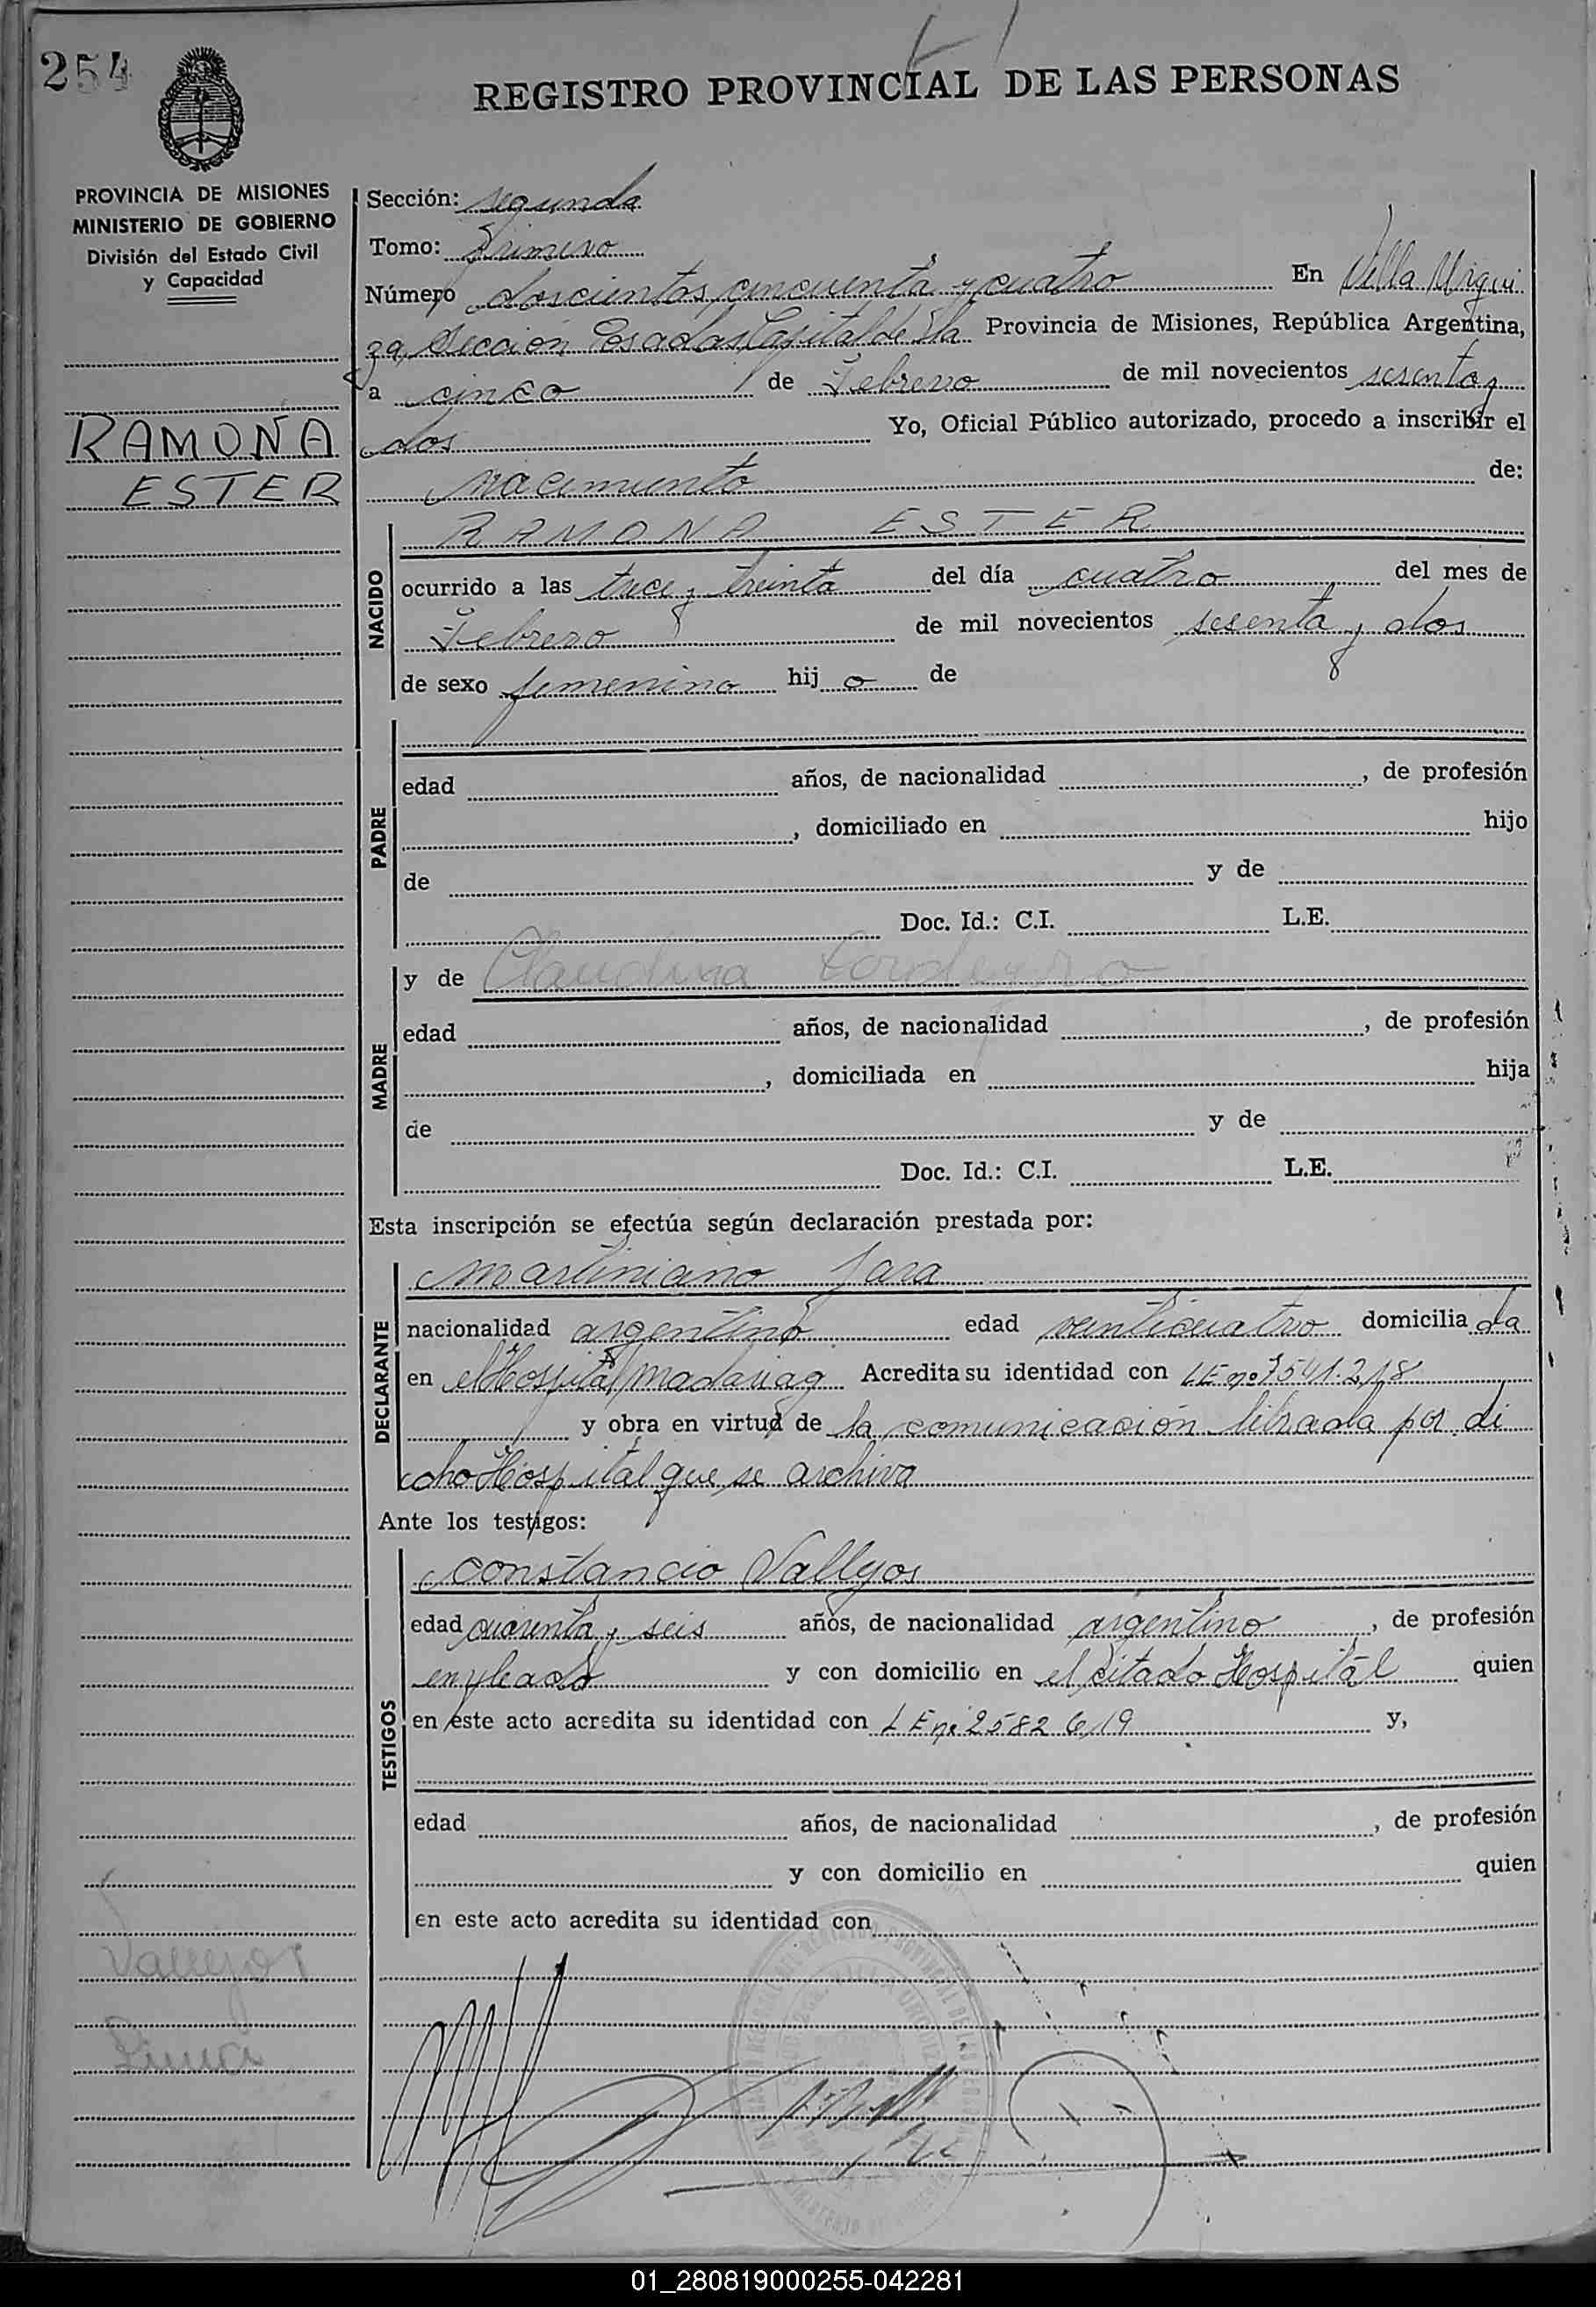 254
REGISTRO PROVINCIAL DE LAS PERSONAS
PROVINCIA DE MISIONES
MINISTERIO DE GOBIERNO
División del Estado Civil
y Capacidad
RAMONA
ESTER
Sección: segunda
Tomo: Primero
Número doscientos cincuenta y cuatro En Villa Urqui
za, Sección Posadas, Capital de la Provincia de Misiones, República Argentina,
a cinco de Febrero de mil novecientos sesenta y
dos Yo, Oficial Público autorizado, procedo a inscribir el
nacimiento de:
NACIDO
RAMONA ESTER
ocurrido a las trece y treinta del día cuatro del mes de
Febrero de mil novecientos sesenta y dos
de sexo femenino hij a de
PADRE
edad años, de nacionalidad , de profesión
, domiciliado en hijo
de y de
Doc. Id.: C.I. L.E.
MADRE
y de Claudina
edad años, de nacionalidad , de profesión
, domiciliada en hija
de y de
Doc. Id.: C.I. L.E.
Esta inscripción se efectúa según declaración prestada por:
DECLARANTE
Martiniano Jara
nacionalidad argentino edad veinticuatro domicilia da
en el Hospital Madariag Acredita su identidad con L E nº 7541.218
y obra en virtud de la comunicación librada por di
cho Hospital que se archiva
Ante los testigos:
TESTIGOS
Constancio Vallejos
edad cuarenta y seis años, de nacionalidad argentino , de profesión
empleado y con domicilio en el citado Hospital quien
en este acto acredita su identidad con L E nº 2582 619 y,
edad años, de nacionalidad , de profesión
y con domicilio en quien
en este acto acredita su identidad con
Vallejos
01_280819000255-042281